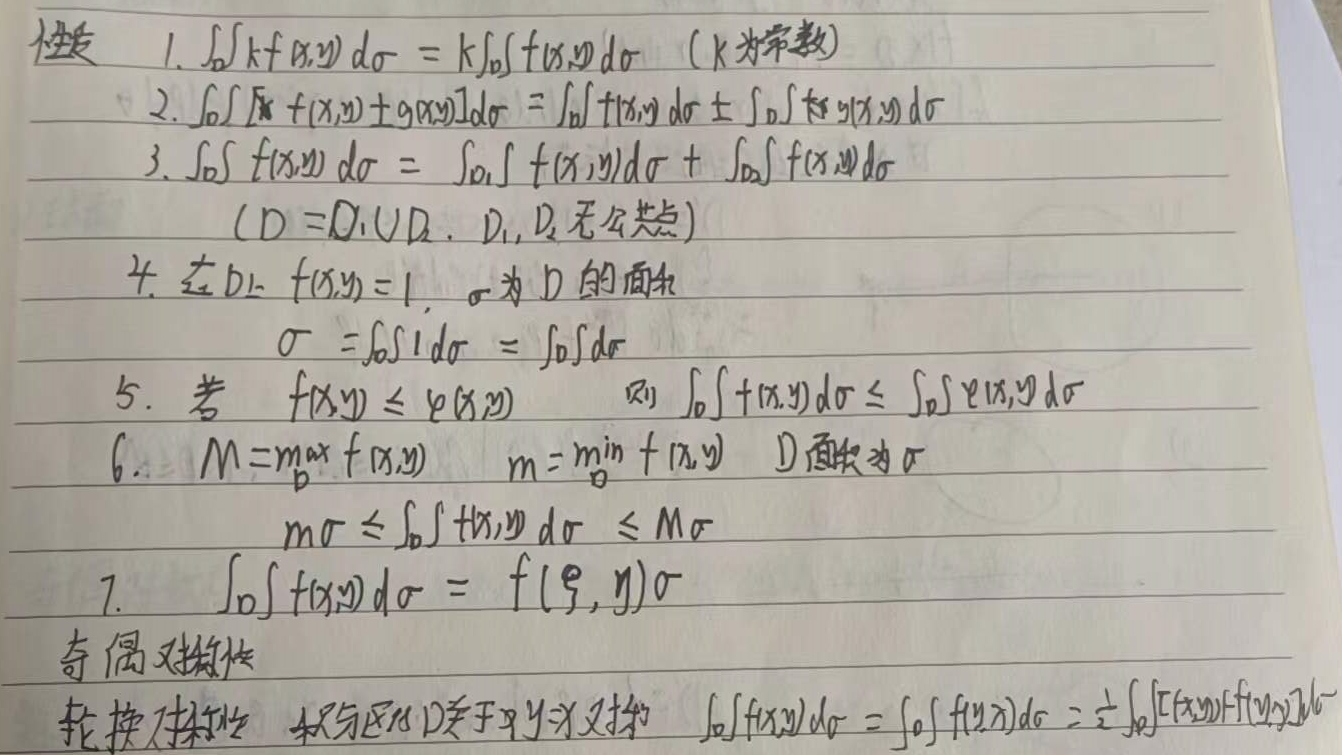 性质 1. ∫_D∫ k f(x,y) dσ = k ∫_D∫ f(x,y) dσ (k为常数)
2. ∫_D∫ [f(x,y) ± g(x,y)] dσ = ∫_D∫ f(x,y) dσ ± ∫_D∫ g(x,y) dσ
3. ∫_D∫ f(x,y) dσ = ∫_D₁∫ f(x,y) dσ + ∫_D₂∫ f(x,y) dσ
(D = D₁∪D₂. D₁, D₂ 无公共点)
4. 在D上 f(x,y) = 1, σ为D的面积
σ = ∫_D∫ 1 dσ = ∫_D∫ dσ
5. 若 f(x,y) ≤ φ(x,y) 则 ∫_D∫ f(x,y) dσ ≤ ∫_D∫ φ(x,y) dσ
6. M = max_D f(x,y) m = min_D f(x,y) D面积为σ
mσ ≤ ∫_D∫ f(x,y) dσ ≤ Mσ
7. ∫_D∫ f(x,y) dσ = f(ξ, η)σ
奇偶对称性
轮换对称性 积分区域D关于y=x对称 ∫_D∫ f(x,y) dσ = ∫_D∫ f(y,x) dσ = ½ ∫_D∫ [f(x,y)+f(y,x)] dσ